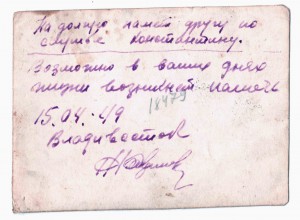 На долгую память другу по
службе Константину.
Возможно в ваших днях
жизни возникнет память
18473
15.04.-49
Владивосток